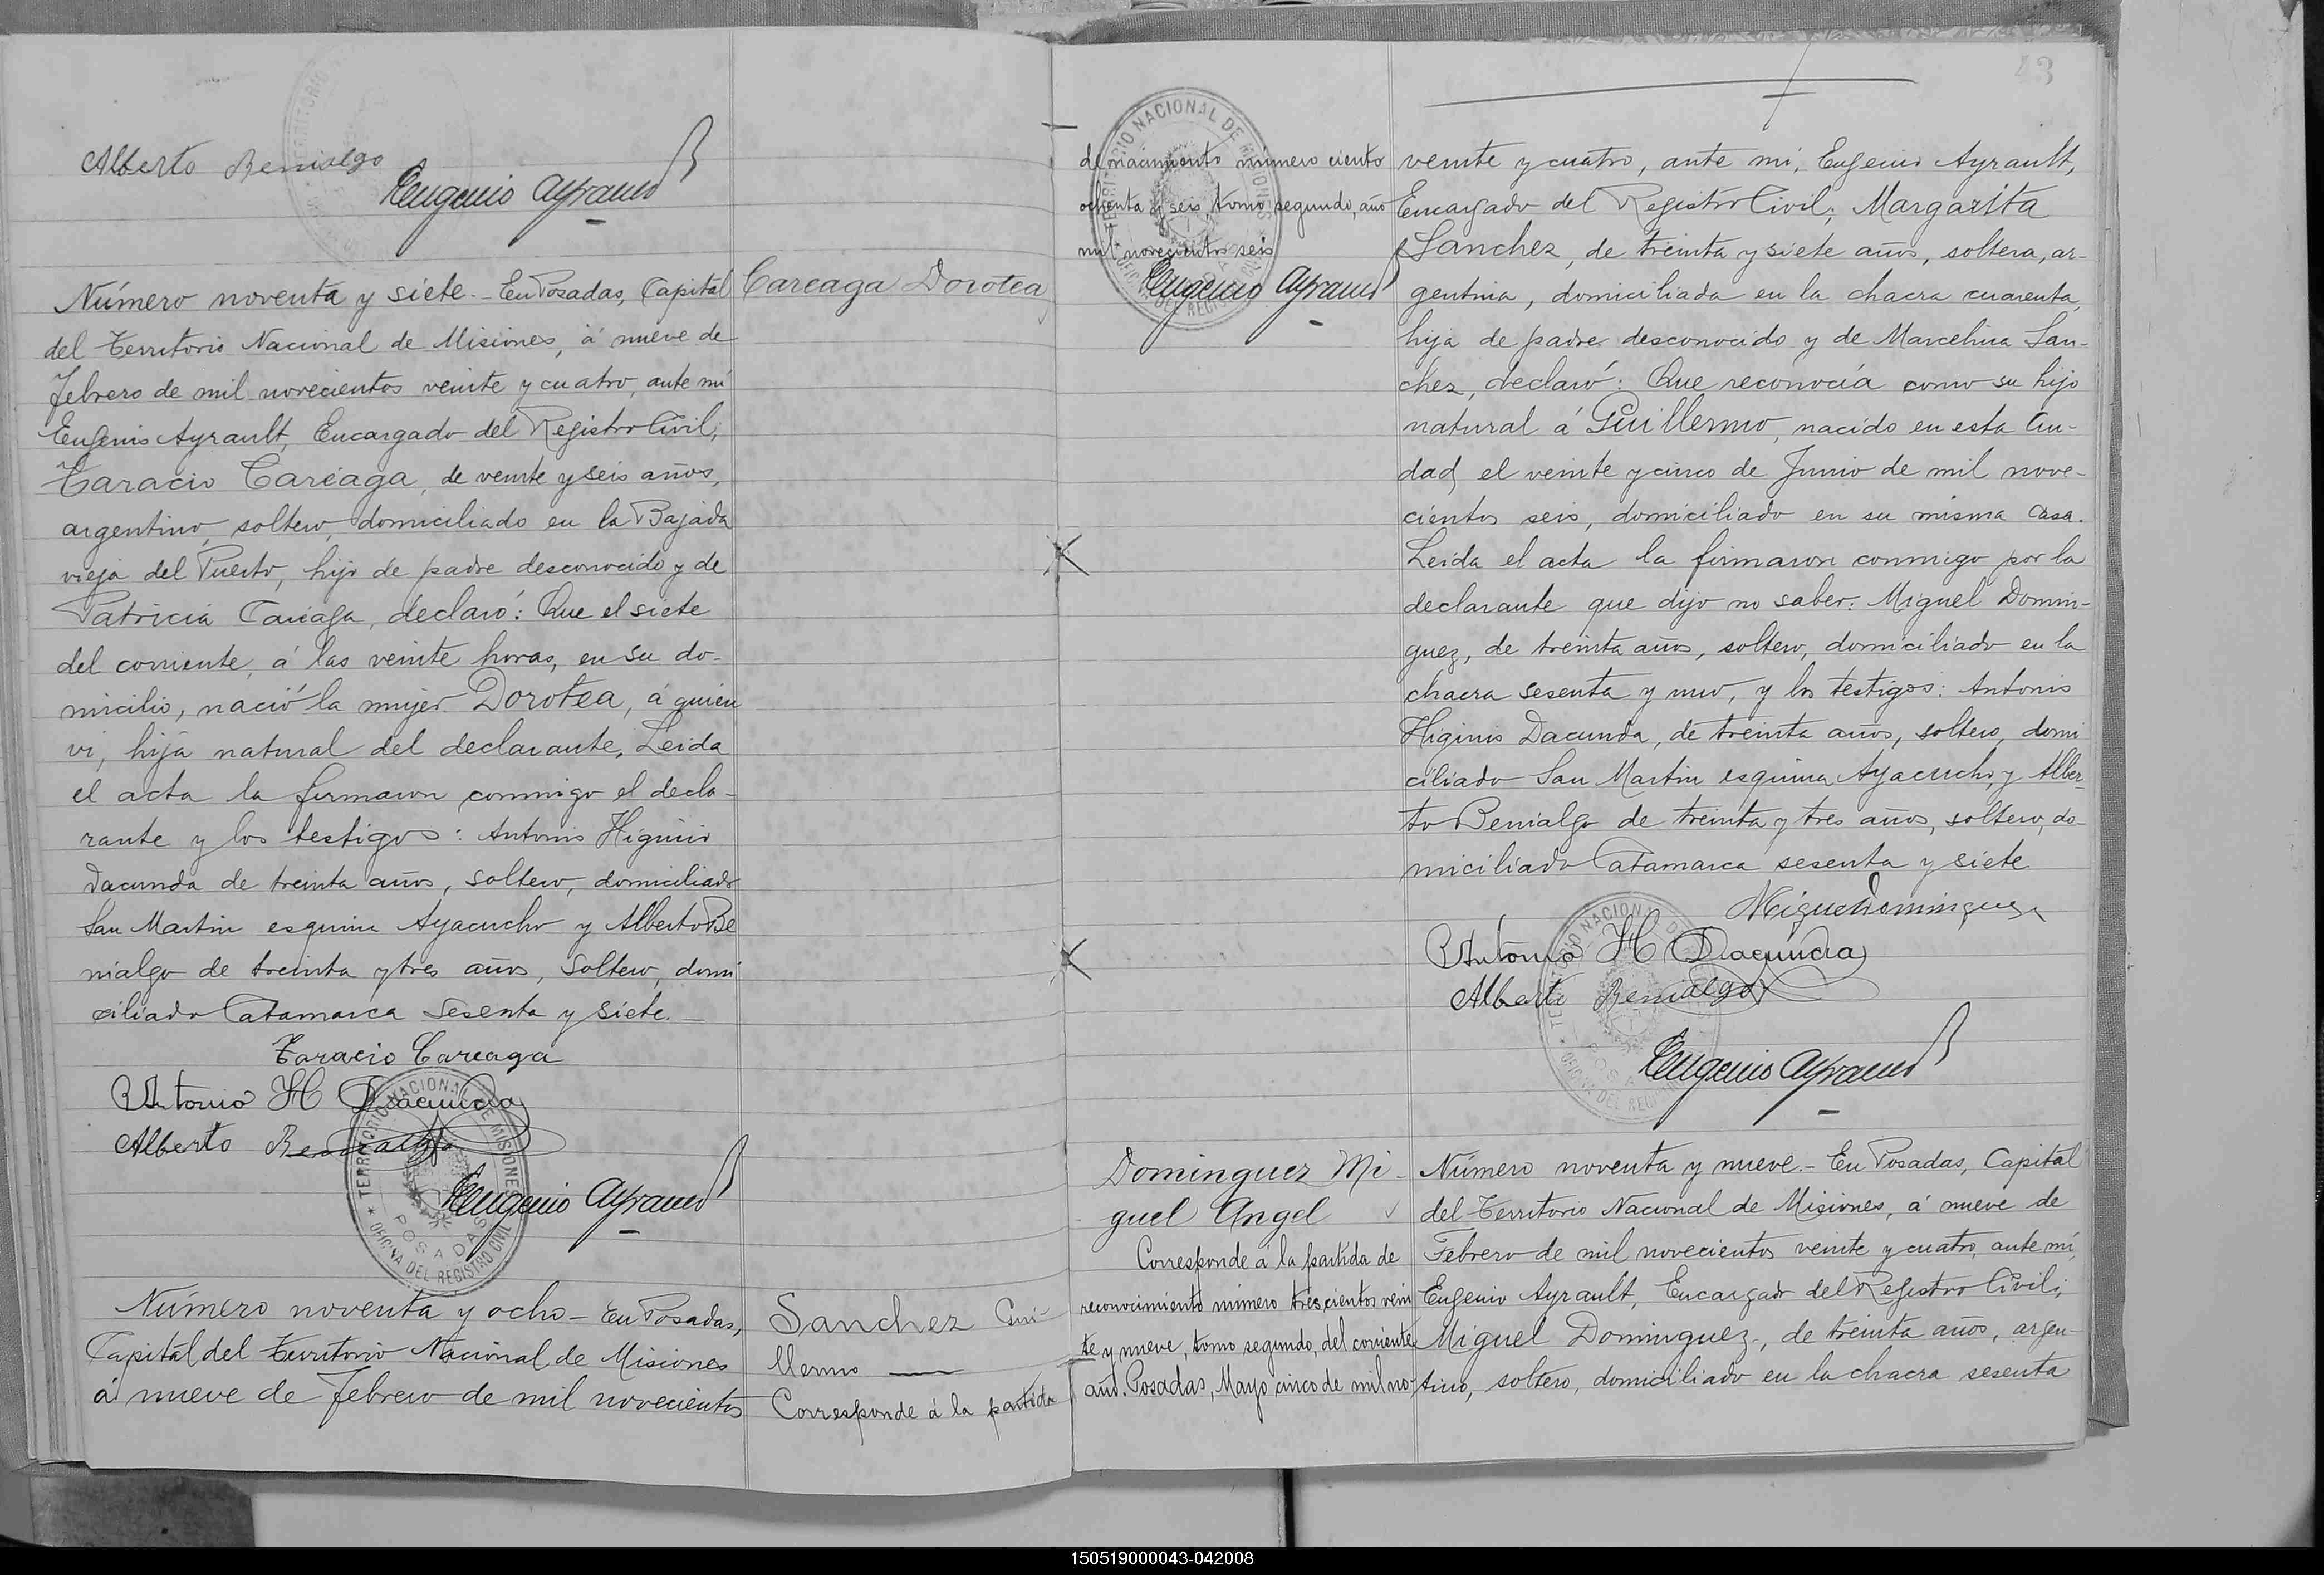 Alberto Benialgo
Eugenio Ayrault
Número noventa y siete.- En Posadas, Capital
del Territorio Nacional de Misiones, á nueve de
Febrero de mil novecientos veinte y cuatro, ante mi
Eugenio Ayrault, Encargado del Registro Civil;
Taracio Careaga, de veinte y seis años,
argentino, soltero, domiciliado en la Bajada
vieja del Puerto, hijo de padre desconocido y de
Patricia Careaga, declaró: Que el siete
del corriente, á las veinte horas, en su do-
micilio, nació la mujer Dorotea, á quien
vi, hija natural del declarante. Leida
el acta la firmaron conmigo el decla-
rante y los testigos: Antonio Higinio
Dacunda de treinta años, soltero, domiciliado
San Martin esquina Ayacucho y Alberto Be
nialgo de treinta y tres años, soltero, domi
ciliado Catamarca sesenta y siete.-
Taracio Careaga
Antonio H Dacunda
Alberto Benialgo
Eugenio Ayrault
TERRITORIO NACIONAL DE MISIONES
POSADAS
OFICINA DEL REGISTRO CIVIL
Número noventa y ocho - En Posadas,
Capital del Territorio Nacional de Misiones
á nueve de Febrero de mil novecientos
Careaga Dorotea
Sanchez Gui-
llermo
Corresponde á la partida
de nacimiento número ciento
ochenta y seis tomo segundo, año
mil novecientos seis
Eugenio Ayrault
43
veinte y cuatro, ante mi, Eugenio Ayrault,
Encargado del Registro Civil; Margarita
Sanchez, de treinta y siete años, soltera, ar-
gentina, domiciliada en la chacra cuarenta,
hija de padre desconocido y de Marcelina San-
chez, declaró: Que reconocía como su hijo
natural á Guillermo, nacido en esta Ciu-
dad, el veinte y cinco de Junio de mil nove-
cientos seis, domiciliado en su misma casa.
Leida el acta la firmaron conmigo por la
declarante que dijo no saber: Miguel Domin-
guez, de treinta años, soltero, domiciliado en la
chacra sesenta y uno, y los testigos: Antonio
Higinio Dacunda, de treinta años, soltero, domi
ciliado San Martin esquina Ayacucho, y Alber-
to Benialgo de treinta y tres años, soltero, do-
miciliado Catamarca sesenta y siete
Miguel Dominguez
Antonio H Dacunda
Alberto Benialgo
Eugenio Ayrault
Dominguez Mi-
guel Angel
Corresponde á la partida de
reconocimiento número trescientos vein
te y nueve, tomo segundo, del corriente
año. Posadas, Mayo cinco de mil no-
Número noventa y nueve.- En Posadas, Capital
del Territorio Nacional de Misiones, á nueve de
Febrero de mil novecientos veinte y cuatro, ante mi,
Eugenio Ayrault, Encargado del Registro Civil;
Miguel Dominguez, de treinta años, argen-
tino, soltero, domiciliado en la chacra sesenta
150519000043-042008